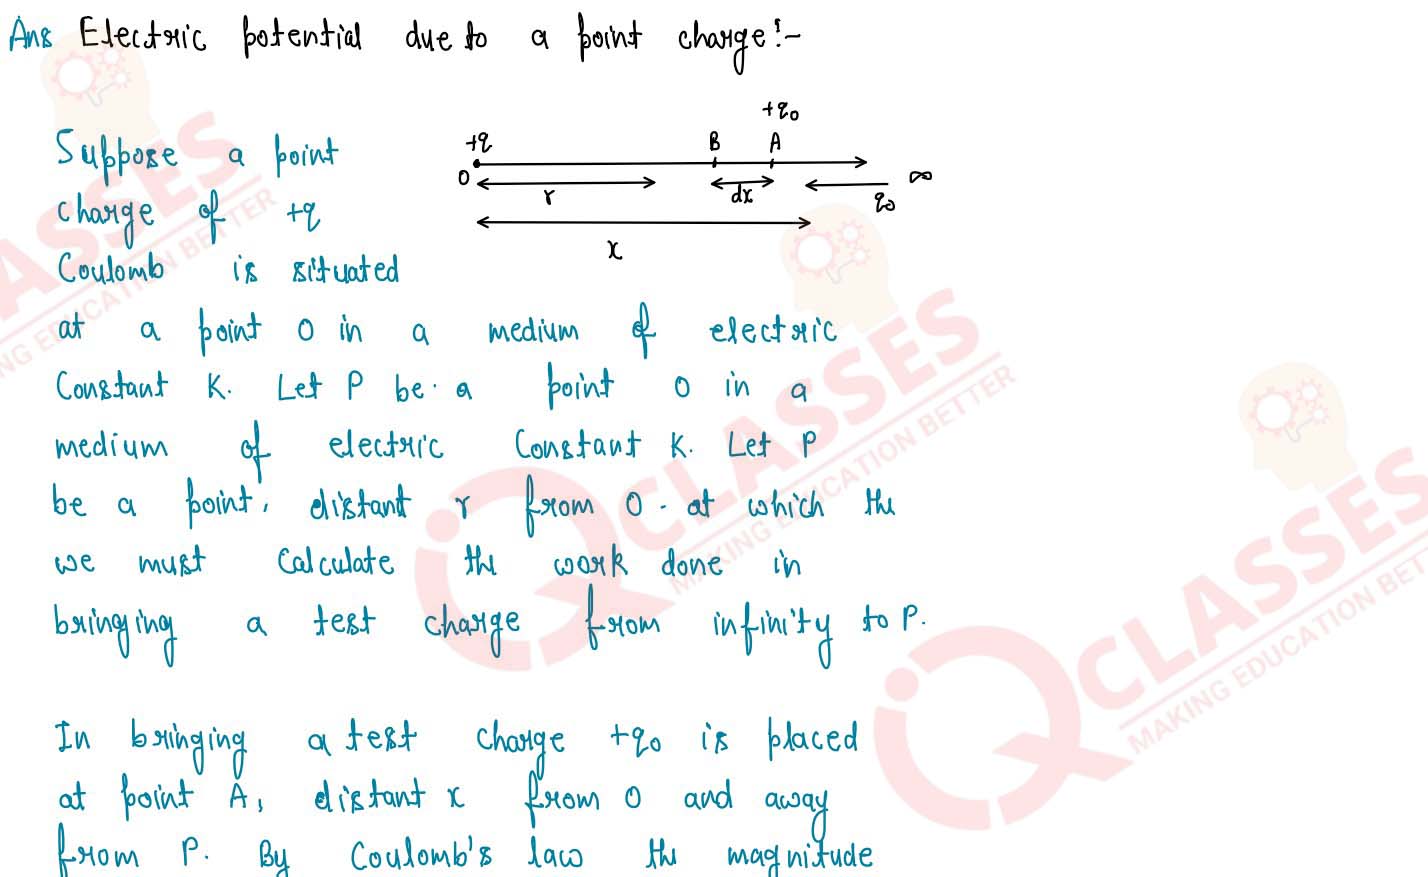 Ans Electric potential due to a point charge:-
+q0
+q B A
O r dx q0 ∞
x
Suppose a point
charge of +q
Coulomb is situated
at a point O in a medium of electric
Constant K. Let P be a point O in a
medium of electric Constant K. Let P
be a point, distant r from O. at which the
we must Calculate the work done in
bringing a test charge from infinity to P.
In bringing a test charge +q0 is placed
at point A, distant x from O and away
from P. By Coulomb's law the magnitude
CLASSES
MAKING EDUCATION BETTER
IQ CLASSES
MAKING EDUCATION BETTER
IQ CLASSES
MAKING EDUCATION BET